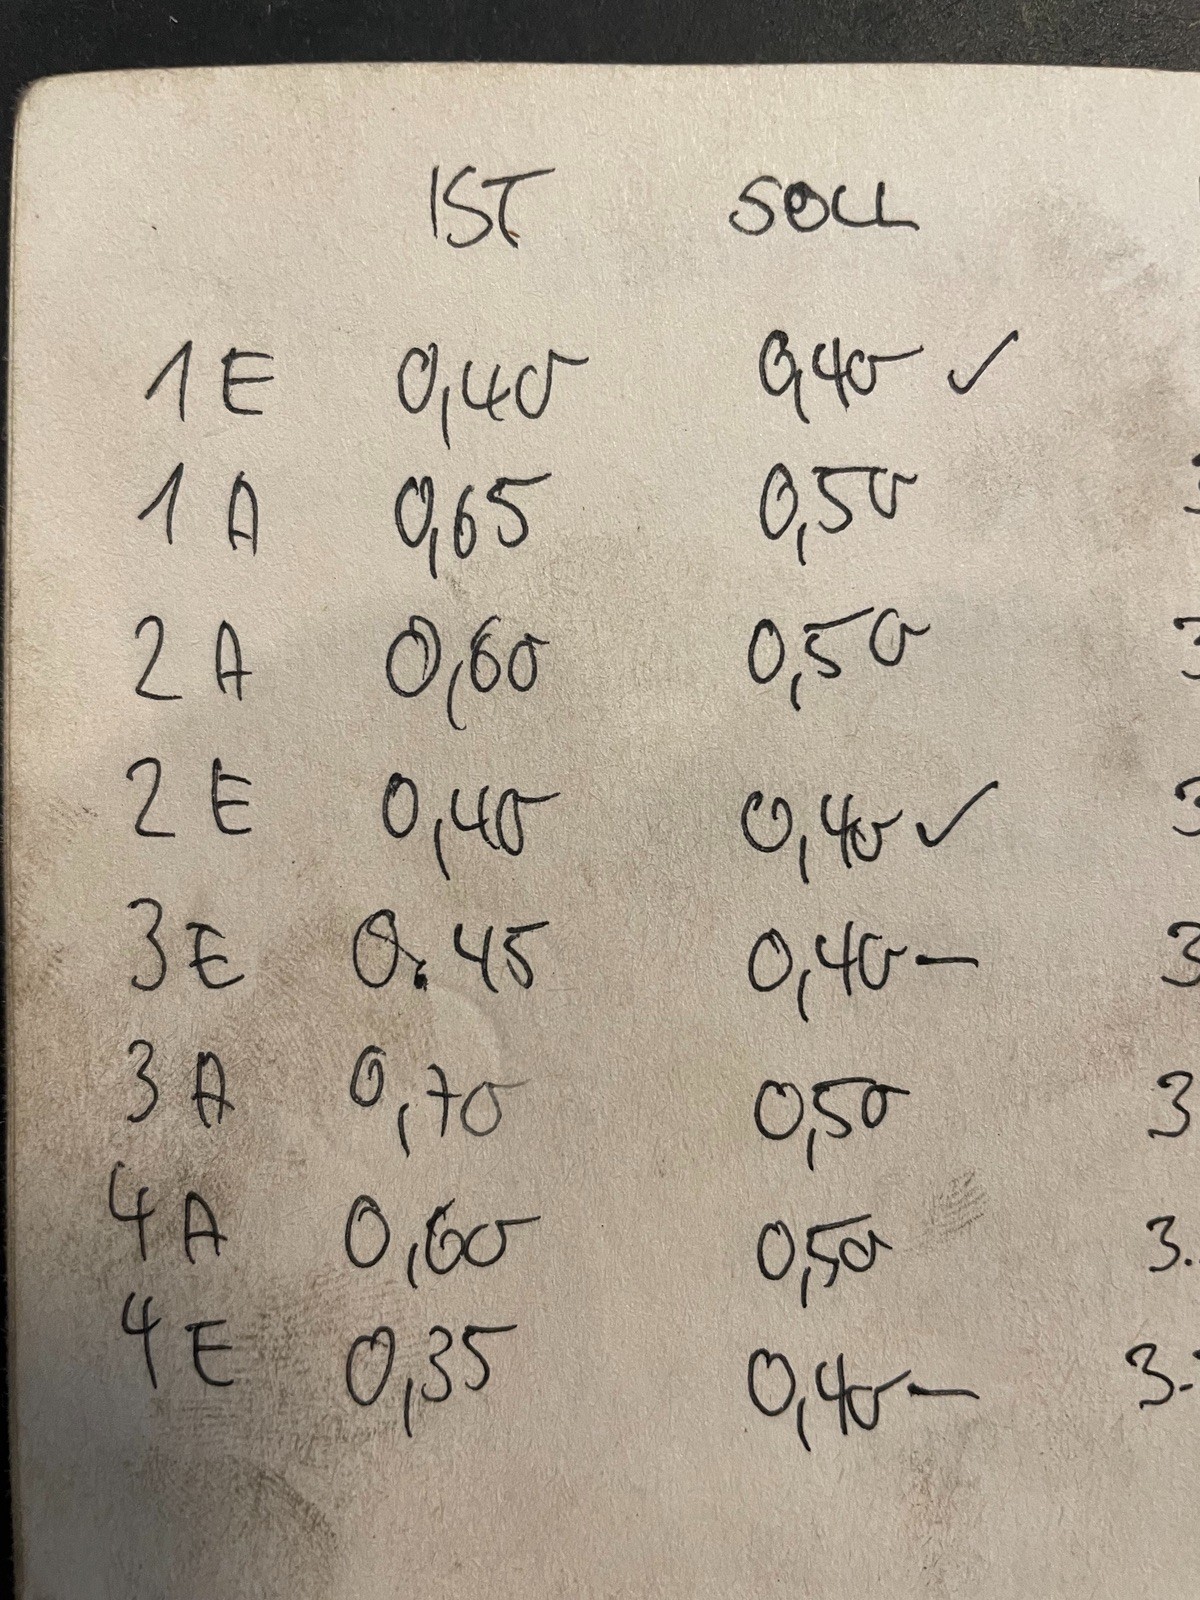 IST SOLL
1 E 0,40 0,40 ✓
1 A 0,65 0,50
2 A 0,60 0,50
2 E 0,40 0,40 ✓
3 E 0.45 0,40 – 3
3 A 0,70 0,50 3
4 A 0,60 0,50 3.
4 E 0,35 0,40 – 3.